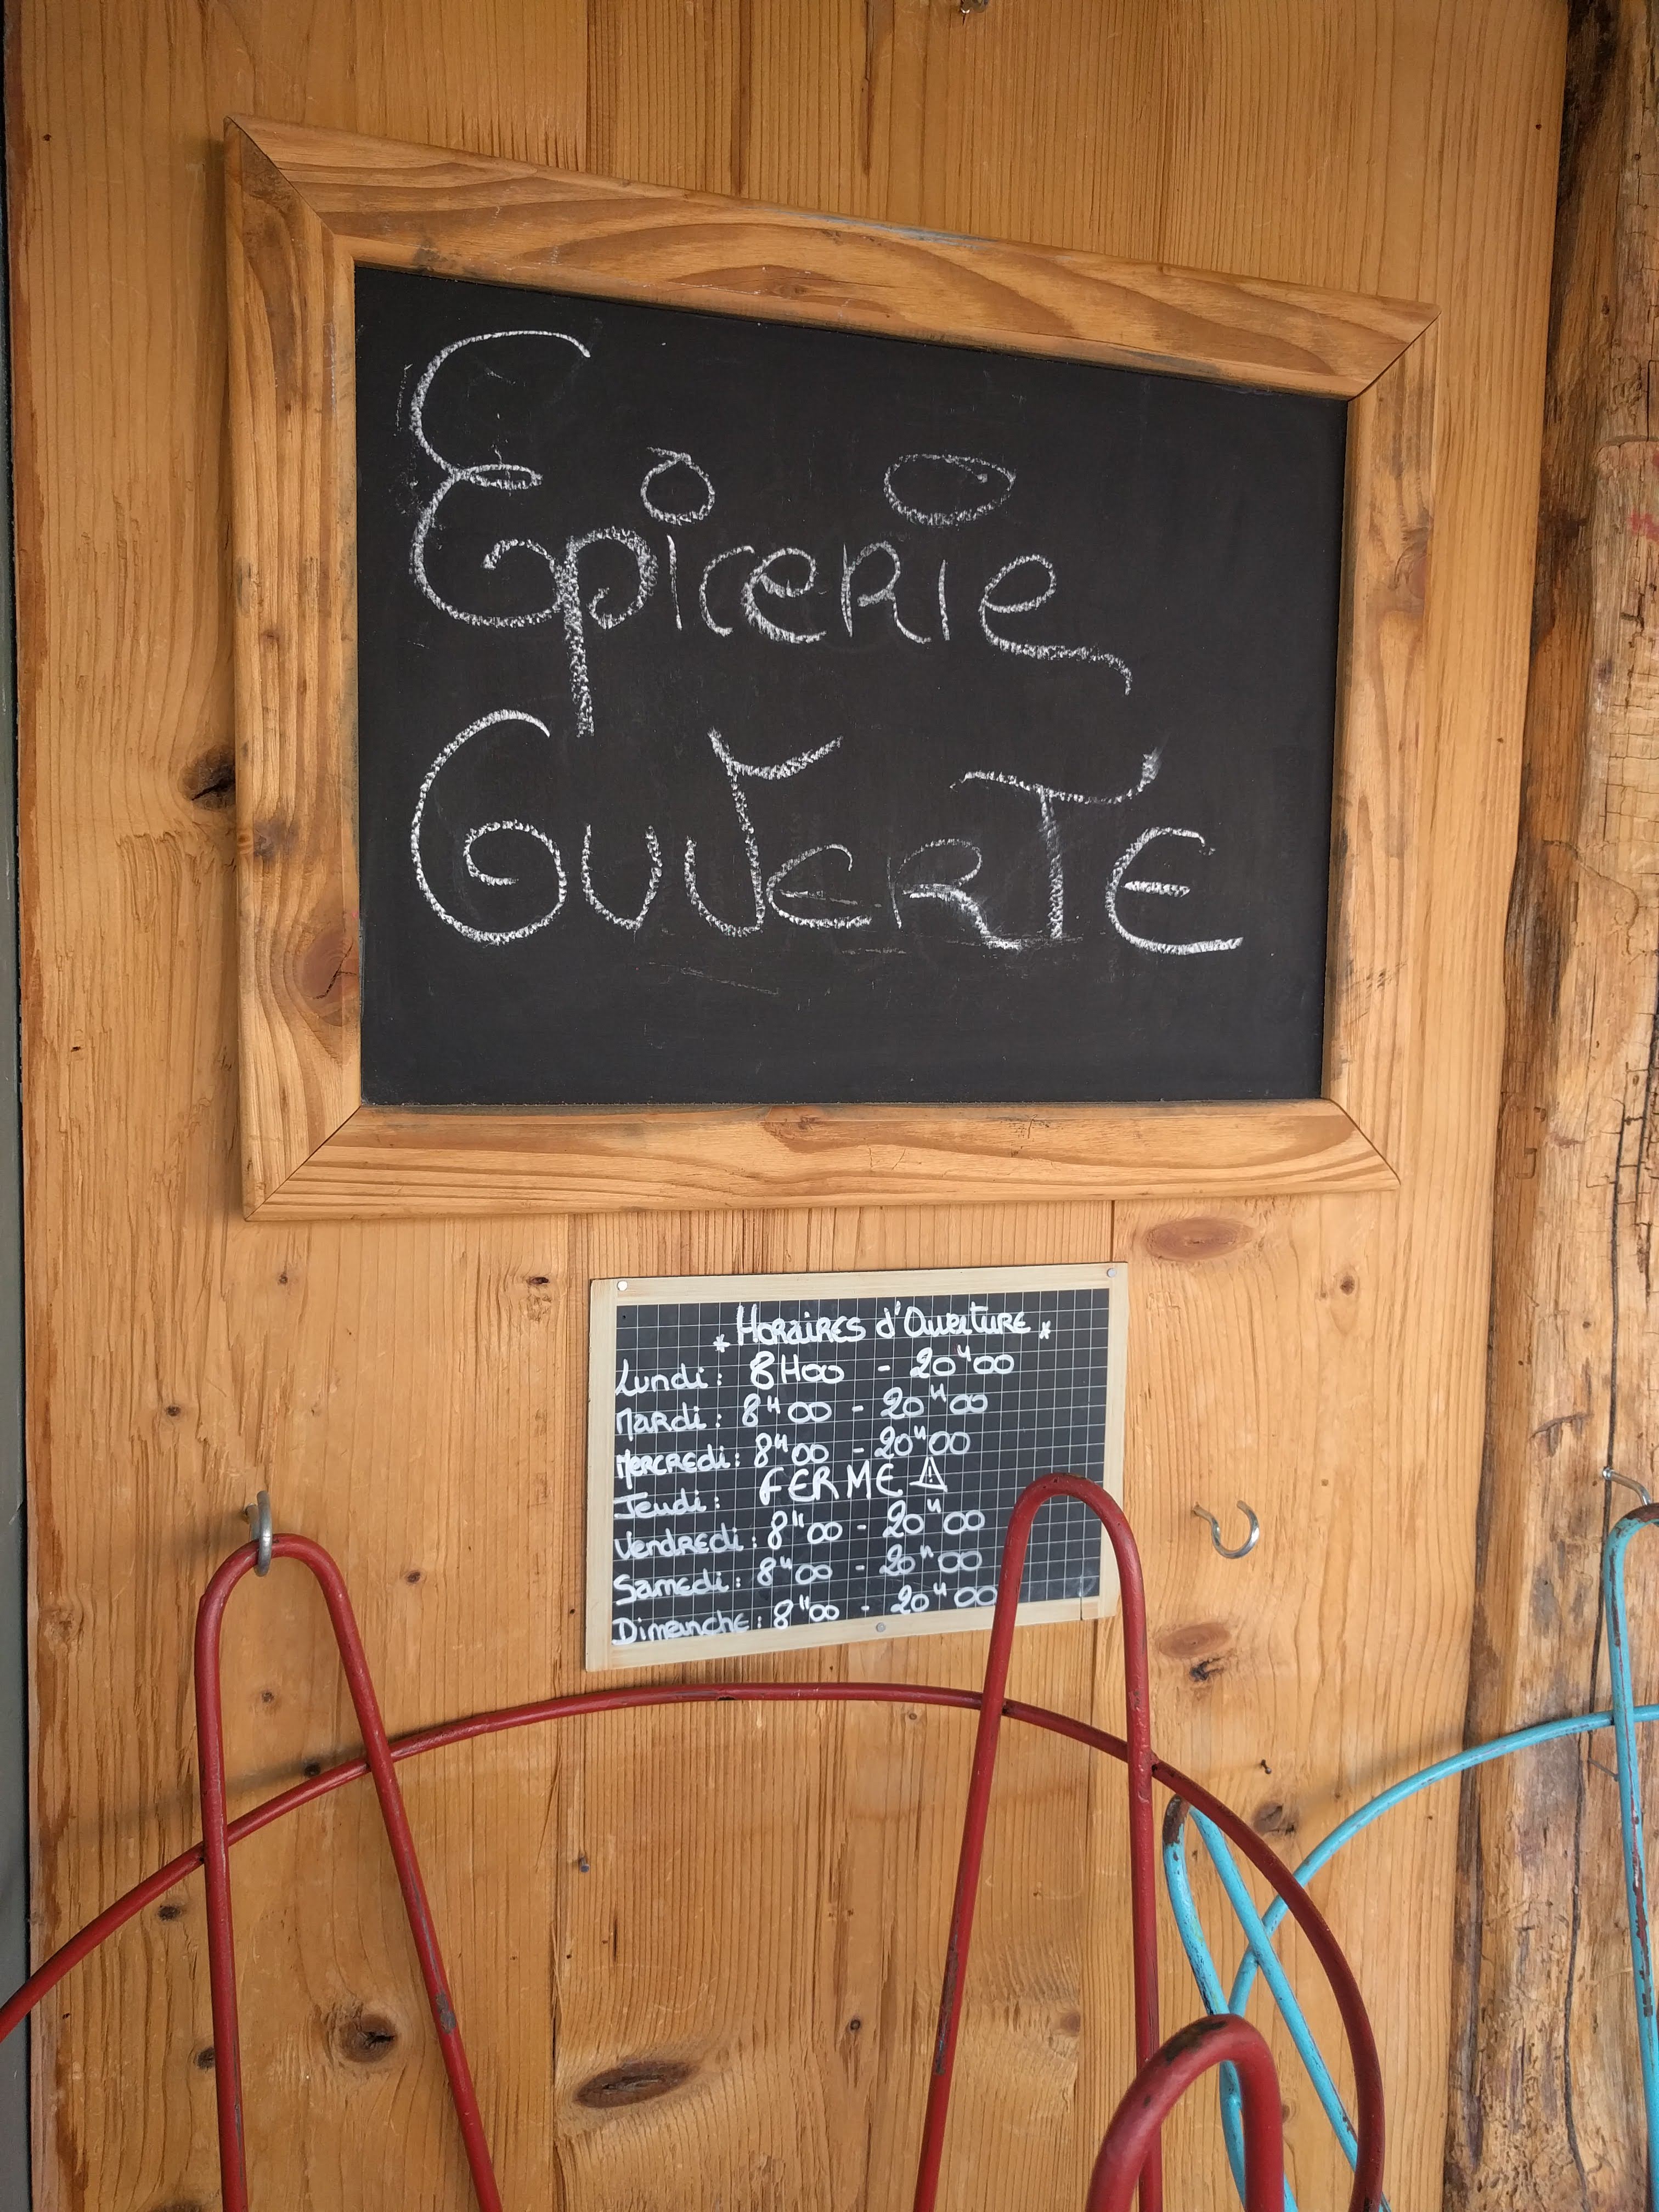 Epicerie
OUVERTE
* HORAIRES d'OuvertURE *
Lundi : 8H00 - 20H00
Mardi : 8H00 - 20H00
Mercredi : 8H00 - 20H00
Jeudi : FERME ⚠
Vendredi : 8H00 - 20H00
Samedi : 8H00 - 20H00
Dimanche : 8H00 - 20H00